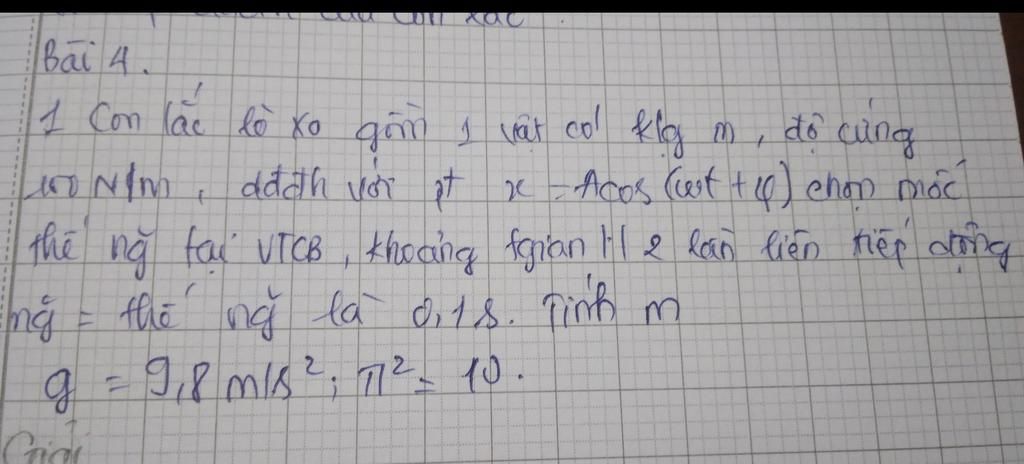 của con lắc
Bài 4.
1 Con lắc lò xo gồm 1 vật có klg m, độ cứng
100 N/m, dđđh với pt x = Acos(ωt + φ) chọn mốc
thế ng̃ tại VTCB, khoảng tgian 2 lần liên tiếp động
ng̃ = thế ng̃ là 0,1s. Tính m
g = 9,8 m/s²; π² = 10.
Giải